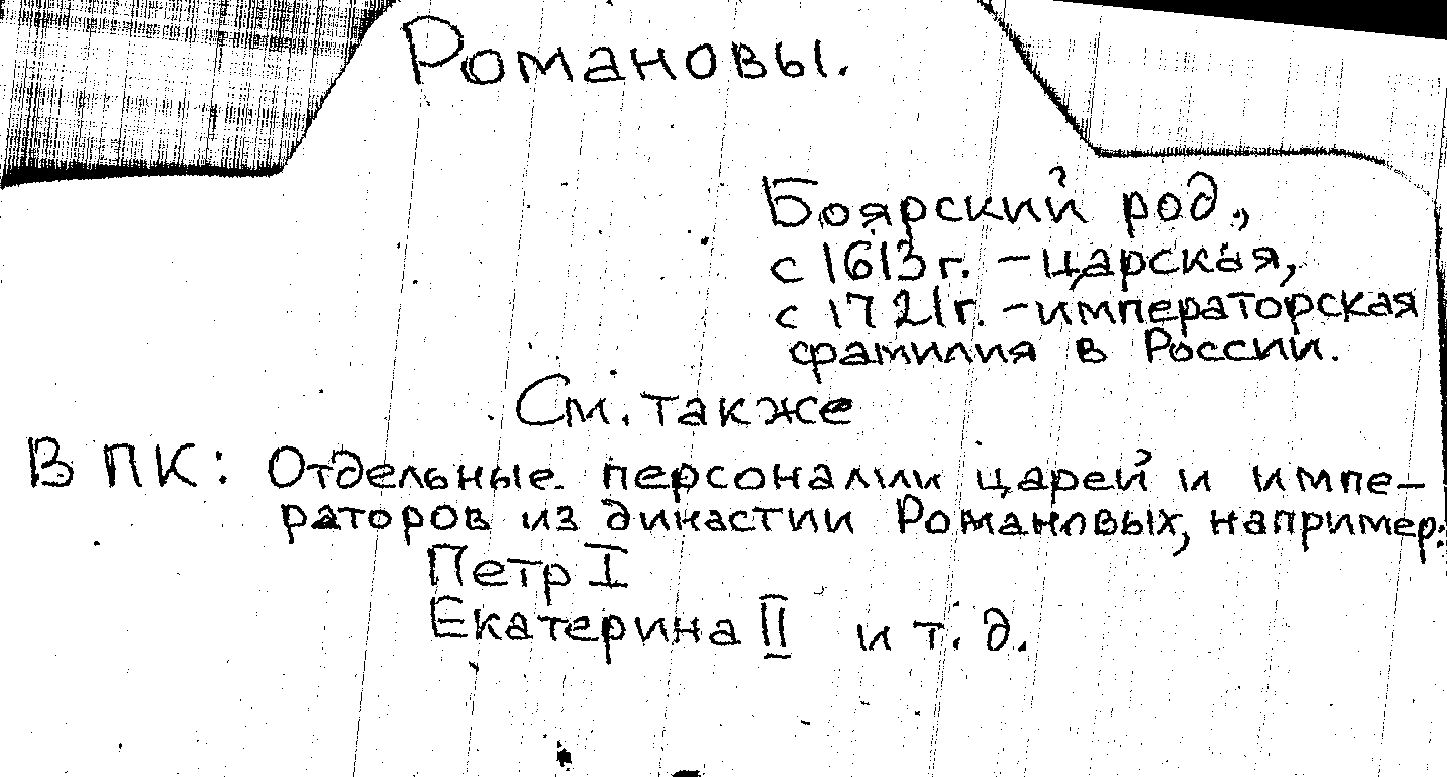 Романовы.
Боярский род,
с 1613 г. - царская,
с 1721 г. - императорская
фамилия в России.
См. также
В ПК: Отдельные персоналии царей и импе-
раторов из династии Романовых, например:
Петр I
Екатерина II и т. д.